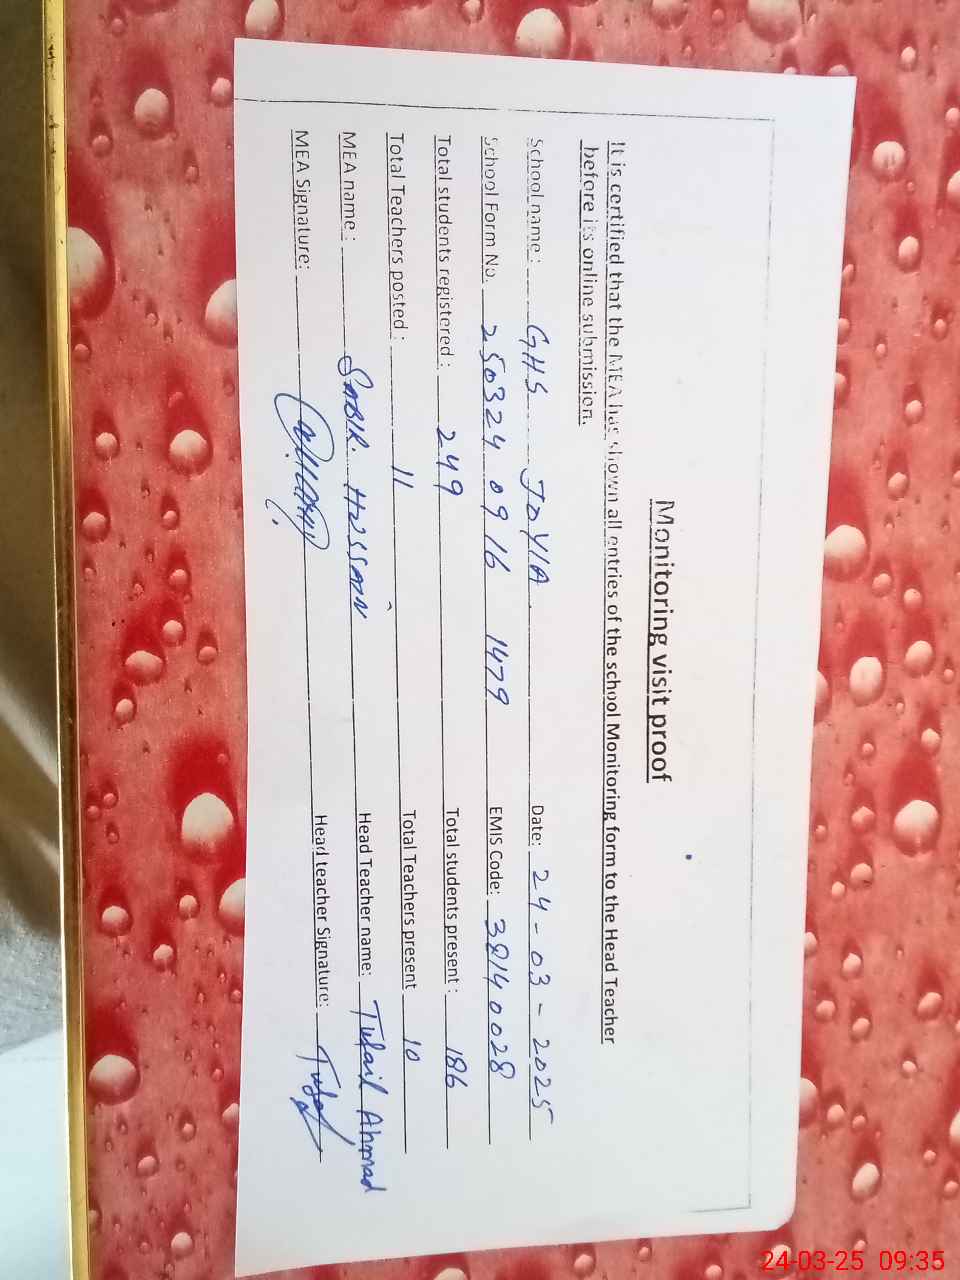 Monitoring visit proof
It is certified that the MEA has shown all entries of the school Monitoring form to the Head Teacher
before its online submission.
School name: GHS JOYIA Date: 24-03-2025
School Form No. 250324 0916 1479 EMIS Code: 38140028
Total students registered: 249 Total students present: 186
Total Teachers posted: 11 Total Teachers present 10
MEA name: SABIR HUSSAIN Head Teacher name: Tufail Ahmad
MEA Signature: Head teacher Signature: Tufail
24-03-25 09:35